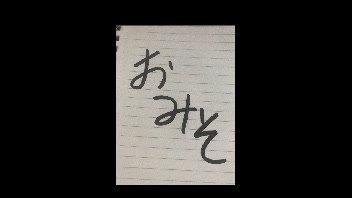 おみそ